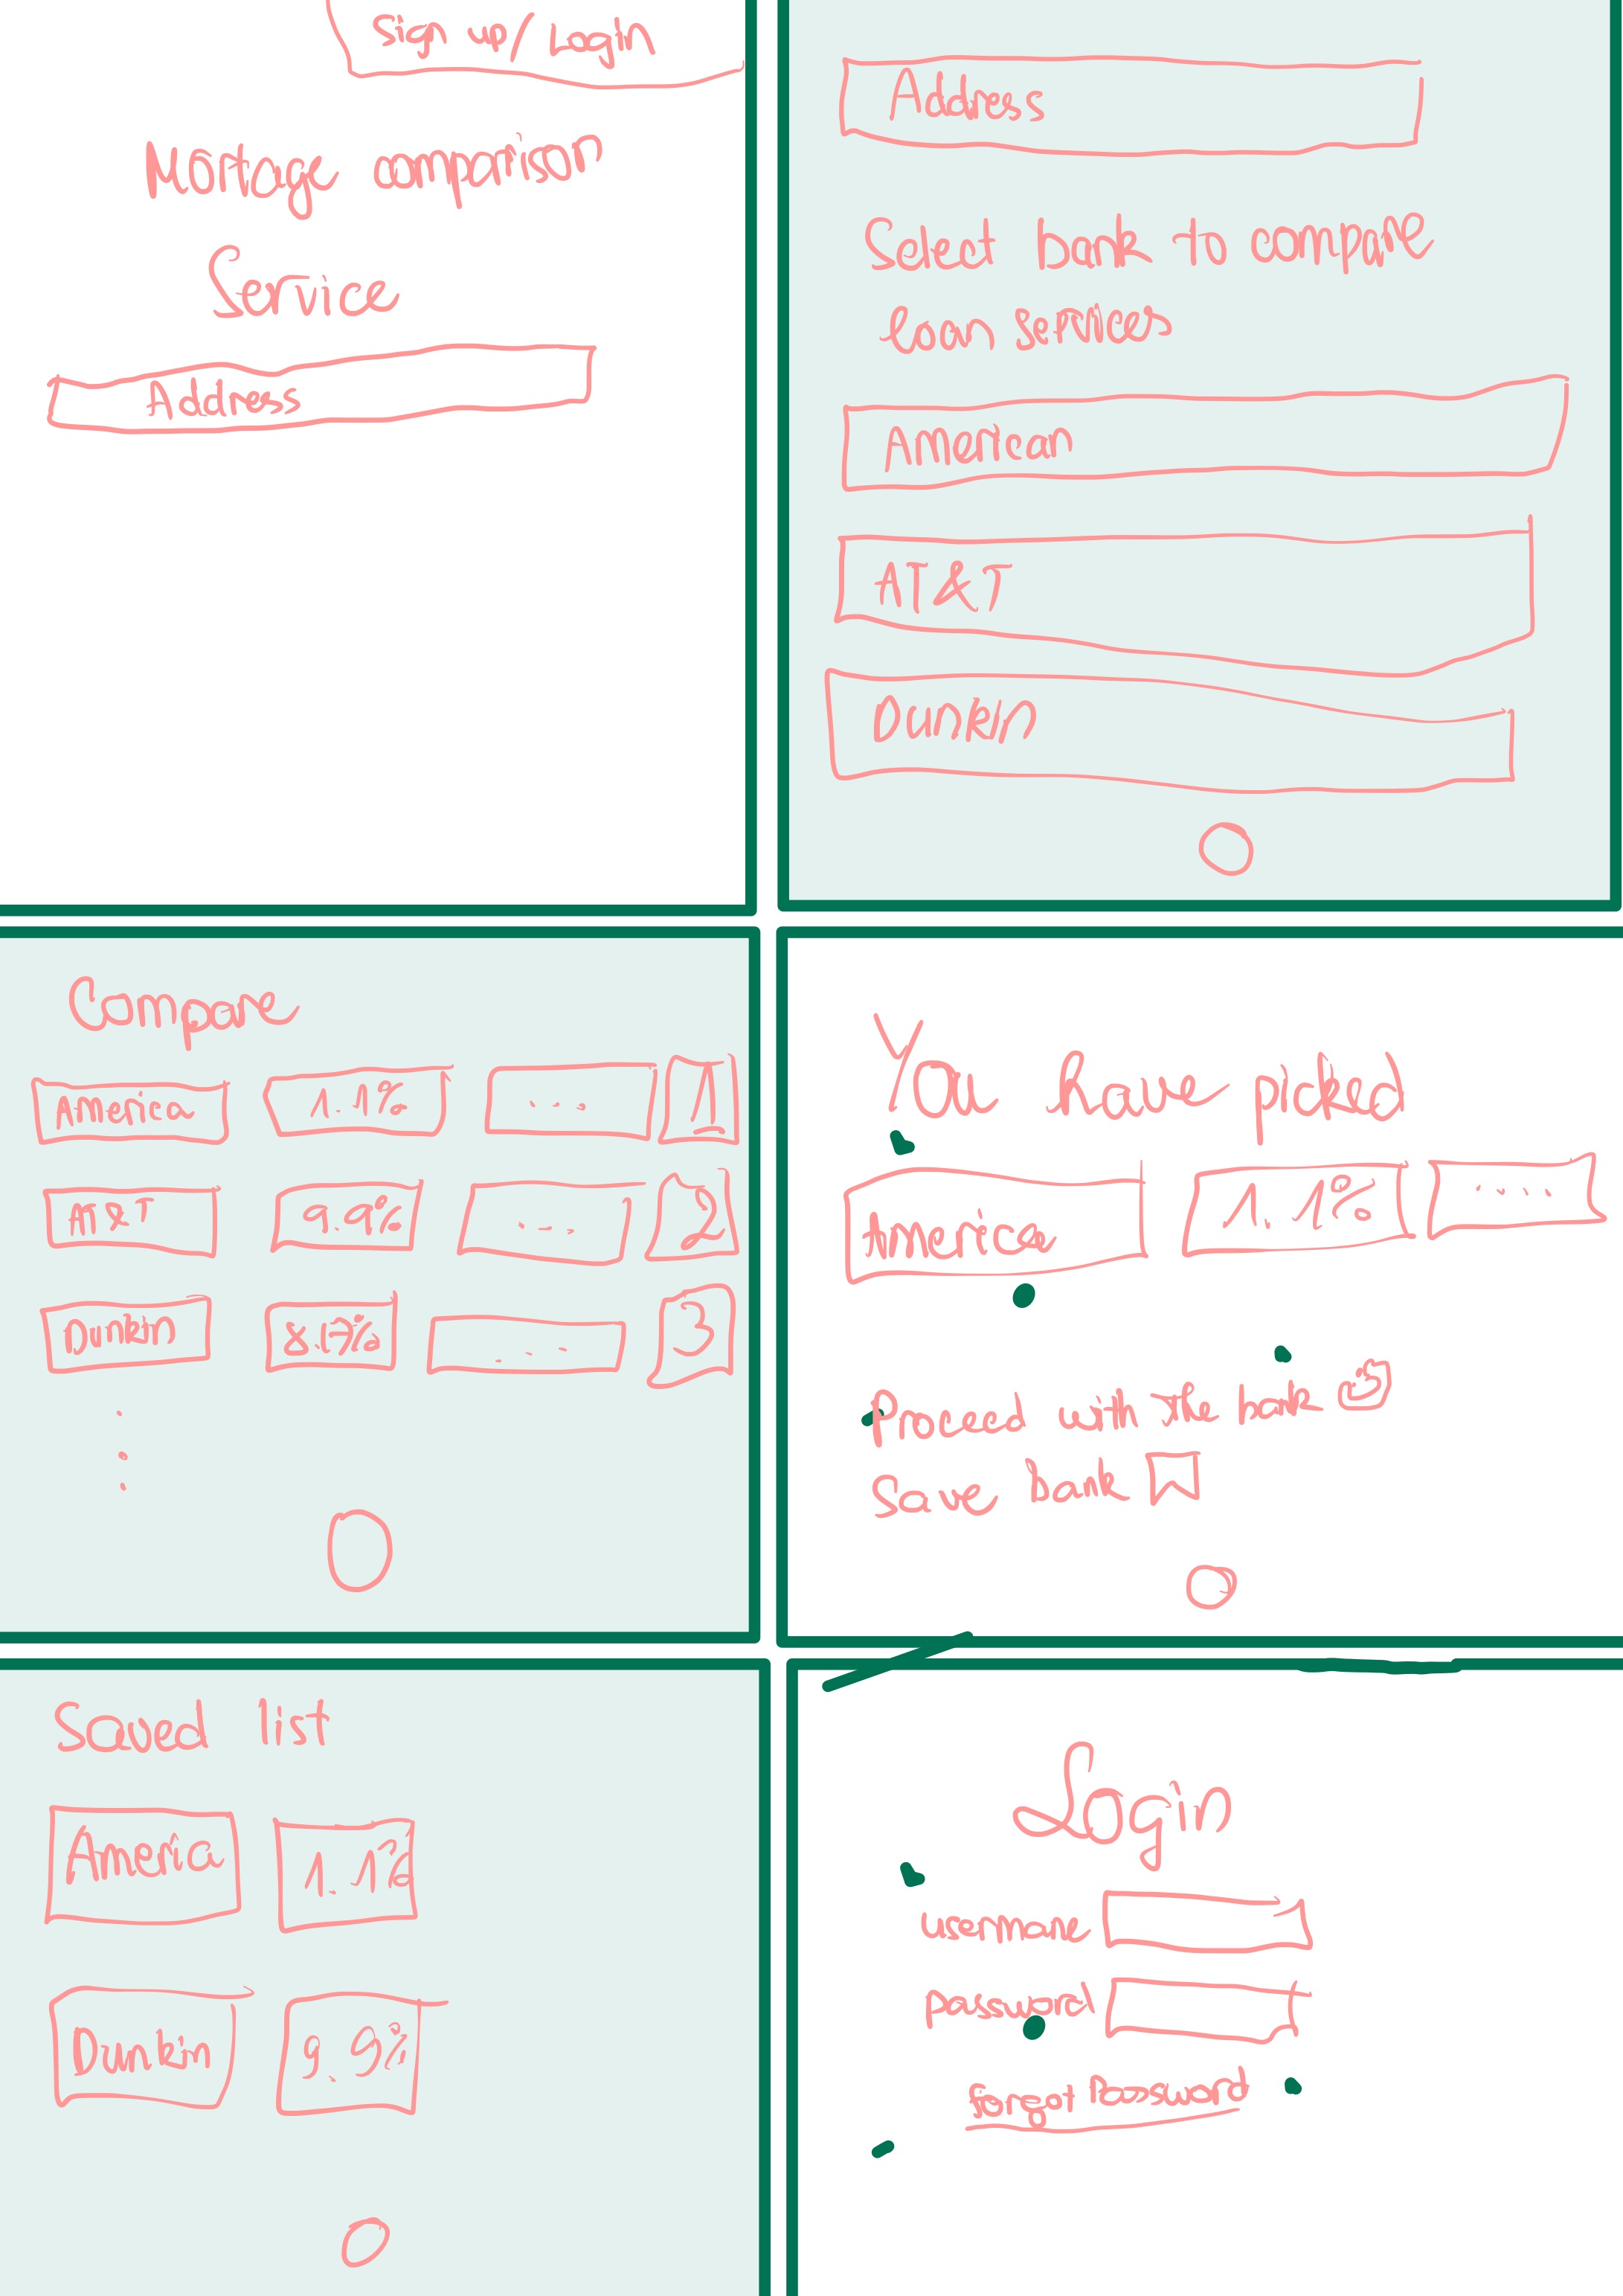 Sign up / Login
Mortgage comparison
Service
Address
Address
Select bank to compare
loan services
American
AT&T
Dunkin
Compare
America 1.1% ... 1
AT&T 9.9% ... 2
Dunkin 8.8% ... 3
You have picked
America 1.1% ....
Proceed with the bank
Save bank
Saved list
America 1.1%
Dunkin 9.9%
Login
username
password
forgot Password